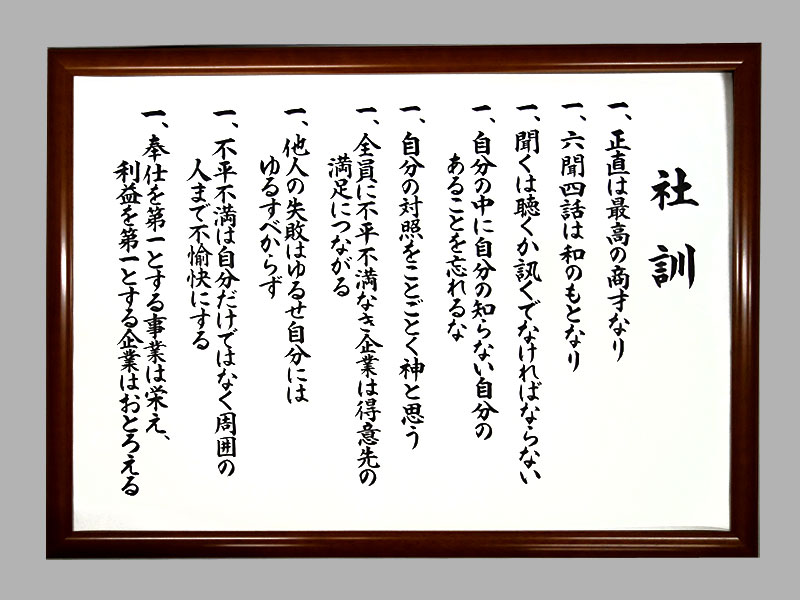 社訓
一、正直は最高の商才なり
一、六聞四話は和のもとなり
一、聞くは聴くか訊くでなければならない
一、自分の中に自分の知らない自分の
あることを忘れるな
一、自分の対照をことごとく神と思う
一、全員に不平不満なき企業は得意先の
満足につながる
一、他人の失敗はゆるせ自分には
ゆるすべからず
一、不平不満は自分だけではなく周囲の
人まで不愉快にする
一、奉仕を第一とする事業は栄え、
利益を第一とする企業はおとろえる